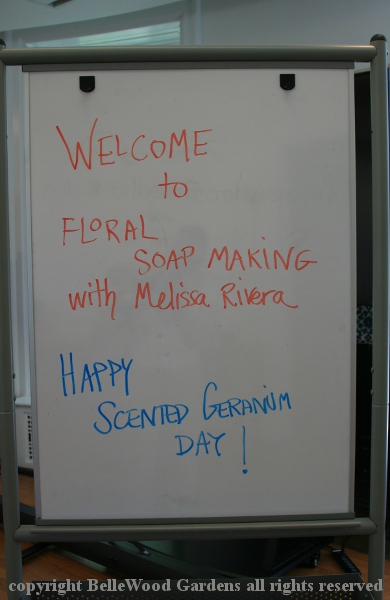 WELCOME
to
FLORAL
SOAP MAKING
with Melissa Rivera
HAPPY
SCENTED GERANIUM
DAY!
copyright BelleWood Gardens all rights reserved